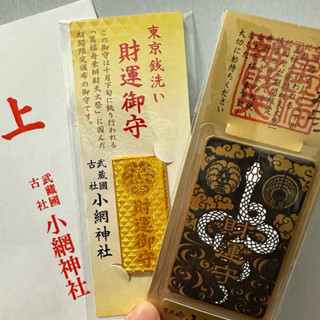 上
武蔵國
古社
小網神社
東京銭洗い
財運御守
この御守は十月下旬に執り行われる
「萬福舟乗弁財天大祭」に因んだ
期間限定頒布の御守です。
武蔵國
古社
小網神社
財運御守
大切にお持ちください
財運守